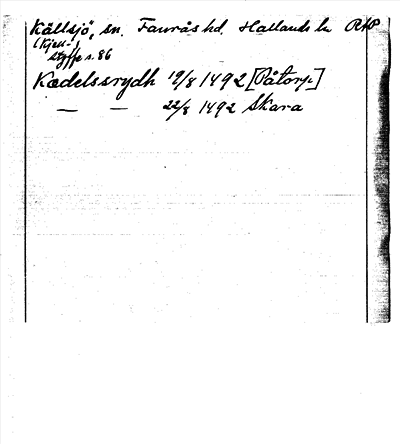 Källsjö, sn. Faurås hd. Hallands ln RAP
(Kjell-)
Styffe s. 86
Kædelssrydh 19/8 1492 [Påtorp.]
— — 22/8 1492 Skara